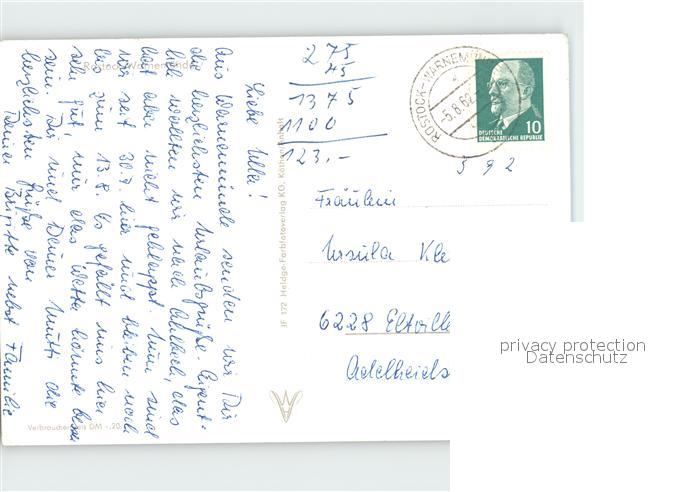 Rostock-Warnemünde
Liebe Ulla!
Aus Warnemünde senden wir Dir
die herzlichsten Urlaubsgrüße. Eigent-
lich wollten wir nach, das
hat aber nicht geklappt. Nun sind
wir seit 30.7. hier und bleiben noch
bis zum 13.8. Es gefällt uns hier
sehr gut, nur das Wetter könnte besser
sein. Dir und Deiner Mutti die
herzlichsten Grüße von
Deiner Brigitte nebst Familie
Verbraucherpreis DM -,20
JF 172 Heldge-Farbfotoverlag KG, Köthen-Anhalt
275
45
1375
1100
123.-
ROSTOCK-WARNEMÜN
-5.8.62
DEUTSCHE
DEMOKRATISCHE REPUBLIK
10
592
Fräulein
Ursula Kle
6228 Eltville
Adelheids
privacy protection
Datenschutz